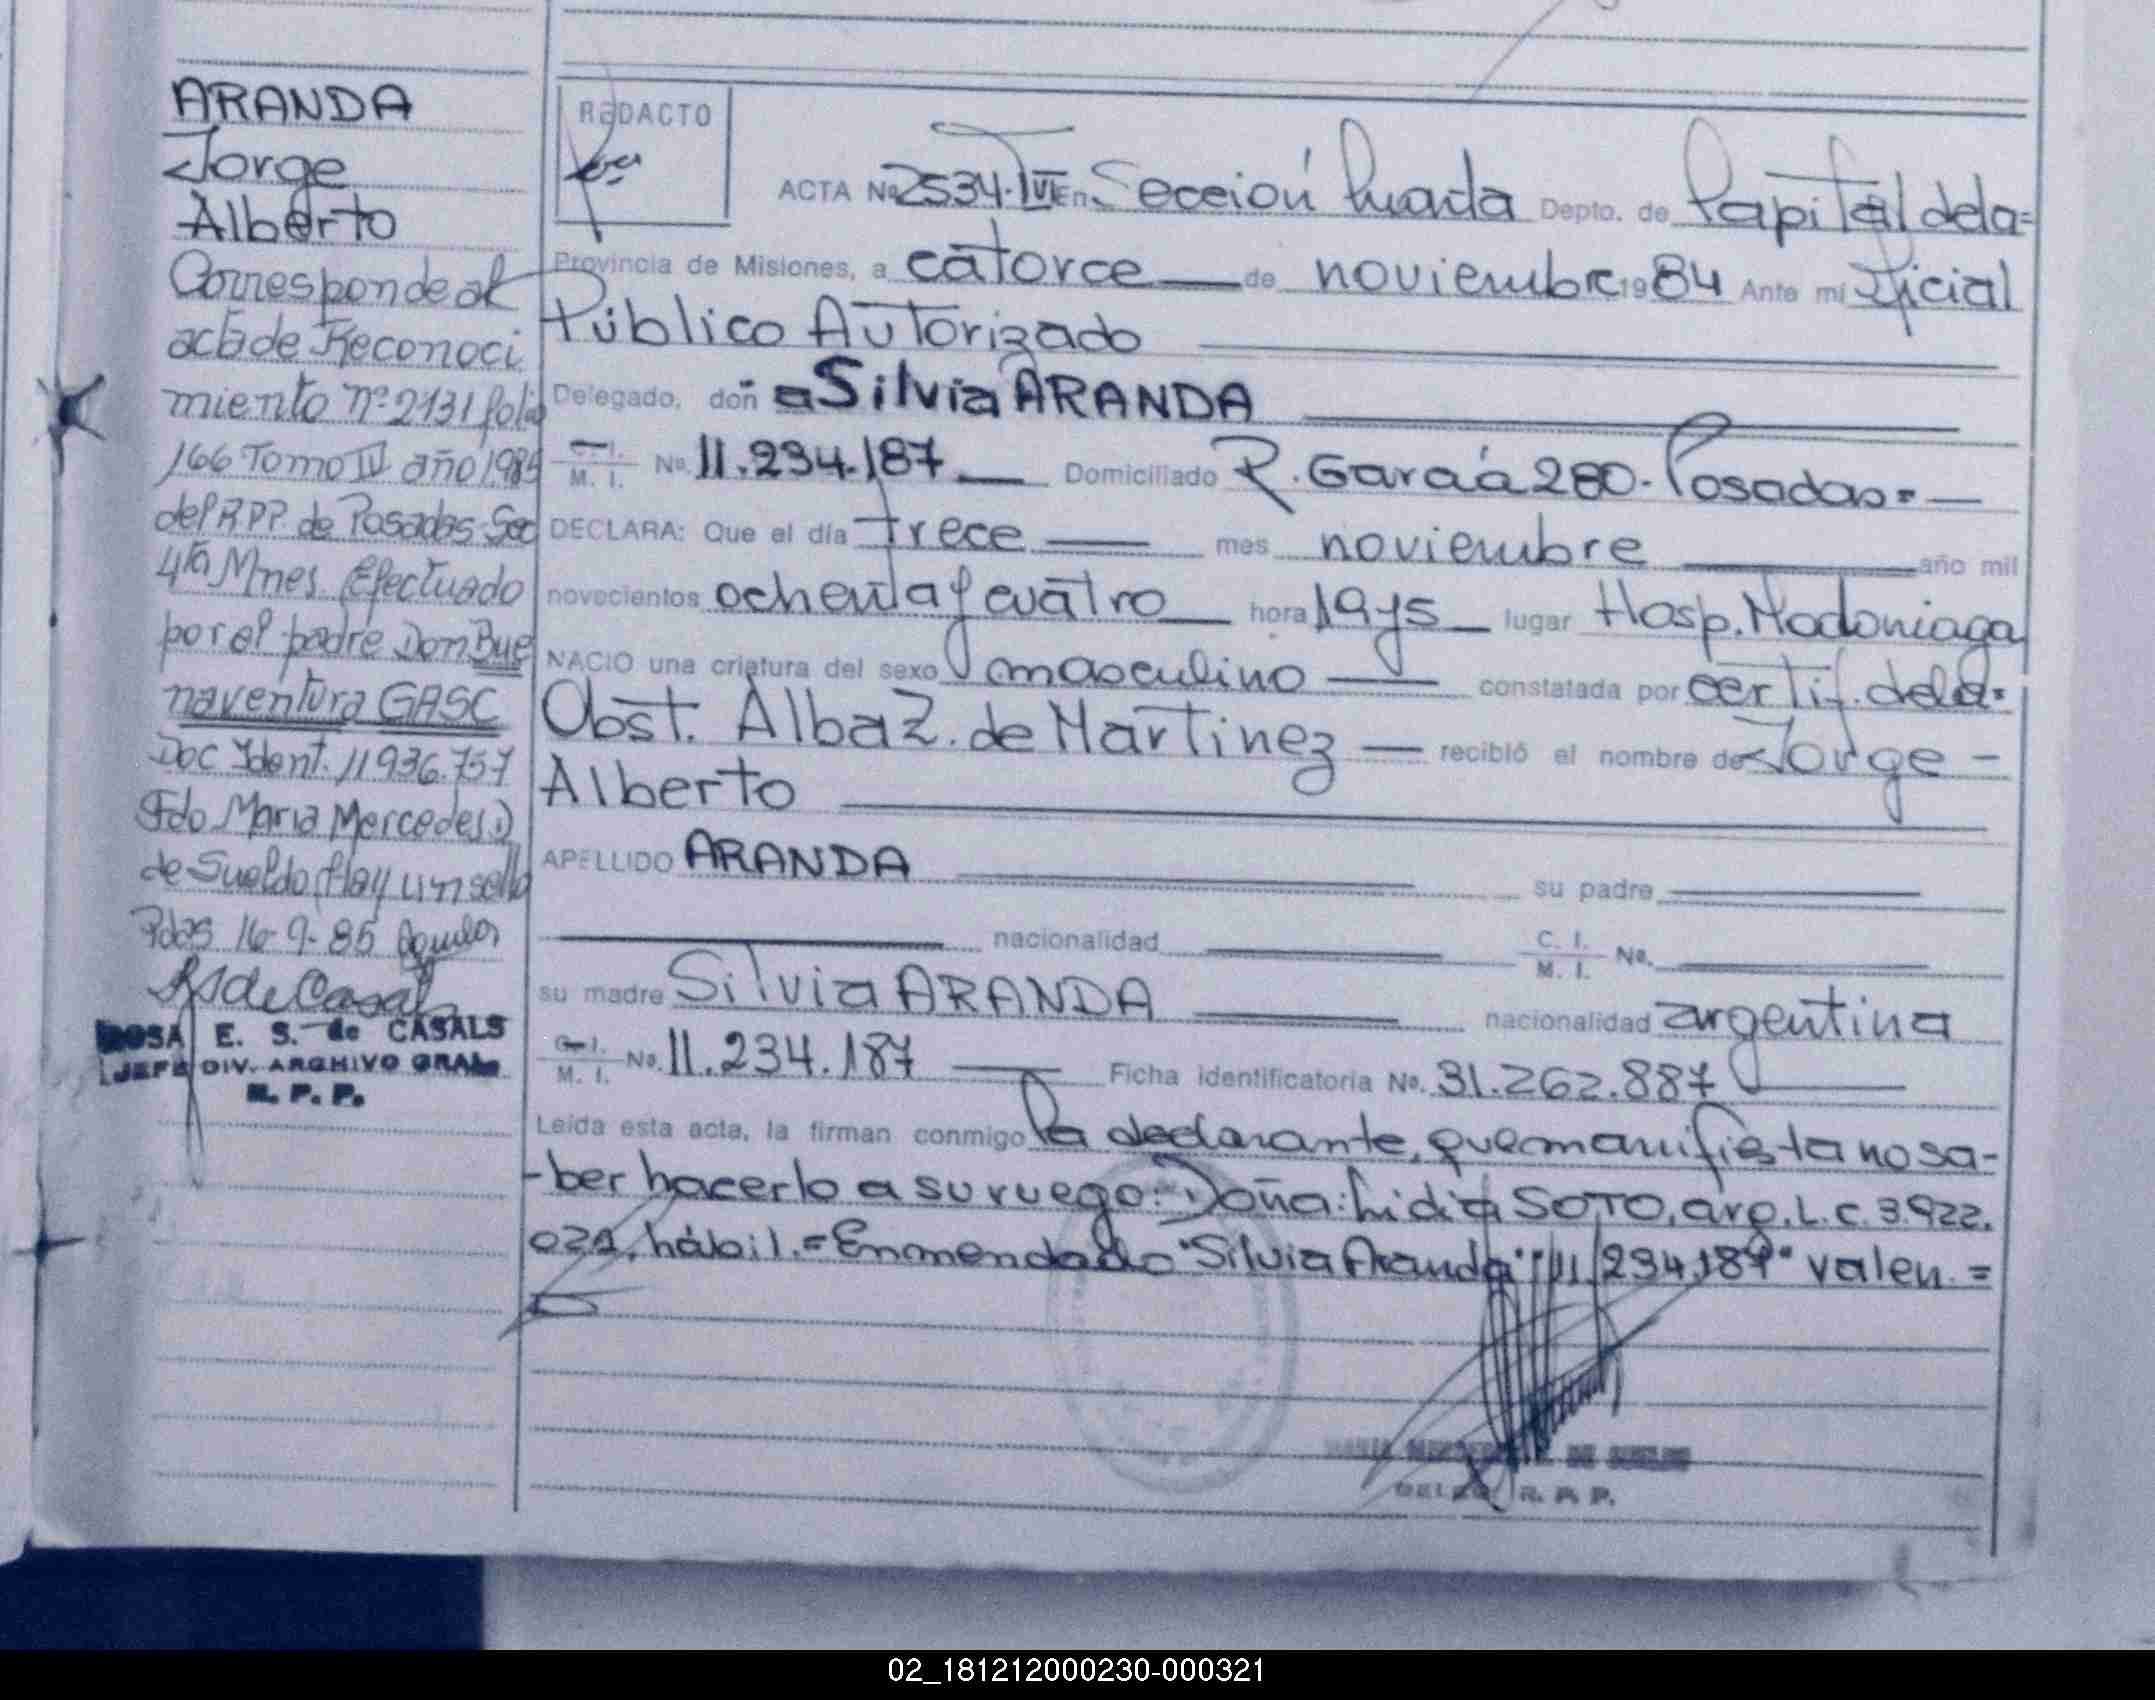 ARANDA
Jorge
Alberto
Corresponde al
acta de Reconoci
miento nº 2131 folio
166 Tomo IV año 1985
del R.P.P. de Posadas Sec
4ta Mnes. Efectuado
por el padre Don Bue
naventura GASC
Doc Ident. 11936.757
Fdo Maria Mercedes
de Sueldo Hay un sello
Pdas 16-9-85
ROSA E. S. de CASALS
JEFE DIV. ARCHIVO GRAL.
R. P. P.
REDACTO
ACTA Nº 2534. En Sección Depto. de Capital de la=
Provincia de Misiones, a catorce de noviembre 1984 Ante mi Oficial
Público Autorizado
Delegado, doñ a Silvia ARANDA
C. I. M. I. No. 11.234.187 Domiciliado R. García 280. Posadas=
DECLARA: Que el día trece mes noviembre año mil
novecientos ochenta y cuatro hora 19 y 5 lugar Hosp. Madariaga
NACIO una criatura del sexo masculino constatada por certif. de la=
Obst. Alba Z. de Martinez recibió el nombre de Jorge -
Alberto
APELLIDO ARANDA su padre
nacionalidad C. I. M. I. No.
su madre Silvia ARANDA nacionalidad argentina
C. I. M. I. No. 11.234.187 Ficha identificatoria No. 31.262.887
Leída esta acta, la firman conmigo la declarante, que manifiesta no sa-
-ber hacerlo a su ruego: Doña: Lidia SOTO, arg. L.C. 3.922.
021, hábil.= Enmendado "Silvia Aranda" "11.234.187" valen.=
DE SUELDO
DELEG. R. P. P.
02_181212000230-000321